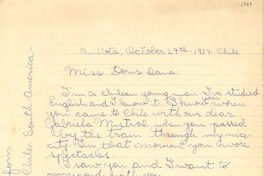 Quillota, October 29th - 1954. Chile
Miss Doris Dana:
I'm a chilean young man. I've studied
English and I know it. I know when
you came to Chile with our dear
Gabriela Mistral when you passed
by the train through my nice
city. In that moment you wore
spectacles.
I saw you and I want to
with you
from
Chile South America-